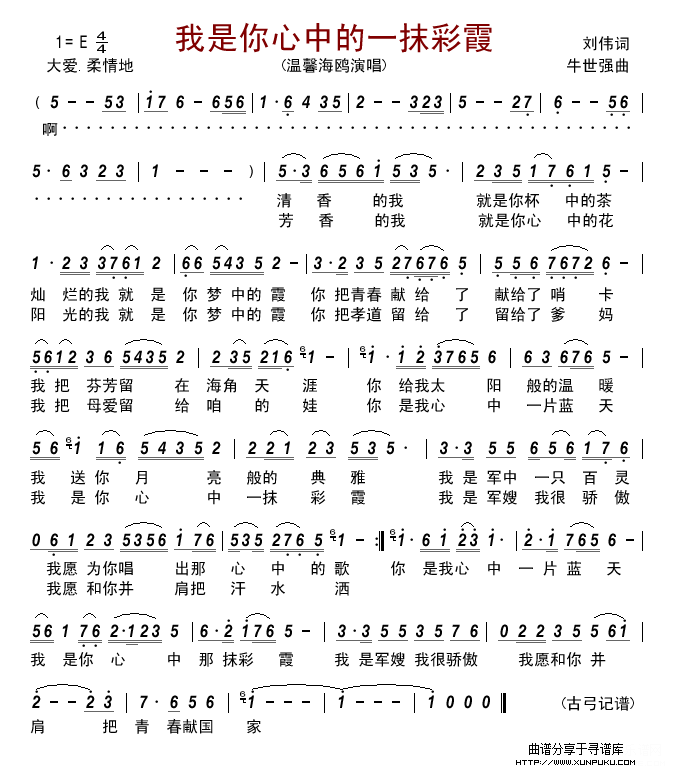 我是你心中的一抹彩霞
1= E 4/4
刘伟词
大爱.柔情地
(温馨海鸥演唱)
牛世强曲
( 5 - - 53 | 1 7 6 - 656 | 1 · 6 4 35 | 2 - - 323 | 5 - - 27 | 6 - - 56 |
啊 · · · · · · · · · · · · · · · · · · · · · · · · · · · · · ·
5 · 6 3 2 3 | 1 - - - ) | 5 · 3 6 5 6 1 5 3 5 · | 2 3 5 1 7 6 1 5 - |
清 香 的我 就是你杯 中的茶
芳 香 的我 就是你心 中的花
1 · 2 3 3761 2 | 66 5435 2 - | 3 · 2 3 5 27676 5 | 5 5 6 7672 6 - |
灿 烂的我 就 是 你 梦 中的 霞 你 把青春 献 给 了 献给了 哨 卡
阳 光的我 就 是 你 梦 中的 霞 你 把孝道 留 给 了 留给了 爹 妈
5612 3 6 5435 2 | 2 35 216 61 - | 61 · 1 2 3765 6 | 6 3 676 5 - |
我 把 芬芳留 在 海角 天 涯 你 给我太 阳 般的温 暖
我 把 母爱留 给 咱 的 娃 你 是我心 中 一片蓝 天
5 6 61 1 6 5 4 3 5 2 | 2 2 1 2 3 5 3 5 · | 3 · 3 5 5 6 5 6 1 7 6 |
我 送 你 月 亮 般的 典 雅 我 是 军中 一只 百 灵
我 是 你 心 中 一抹 彩 霞 我 是 军嫂 我很 骄 傲
0 6 1 2 3 5 3 5 6 1 7 6 | 535 2 76 5 61 - :‖ 61 · 6 1 23 1 | 2 · 1 765 6 |
我愿 为你唱 出那 心 中 的 歌 你 是我心 中 一 片 蓝 天
我愿 和你并 肩把 汗 水 洒
56 1 76 2 · 123 5 | 6 · 2 176 5 - | 3 · 3 5 5 3 5 7 6 | 0 2 2 3 5 5 61 |
我 是你 心 中 那 抹彩 霞 我 是军嫂 我很骄傲 我愿和你 并
2 - - 2 3 | 7 · 6 5 6 | 61 - - - | 1 - - - | 1 0 0 0 ‖ (古弓记谱)
肩 把 青 春献国 家
曲谱分享于寻谱库
HTTP://WWW.XUNPUKU.COM